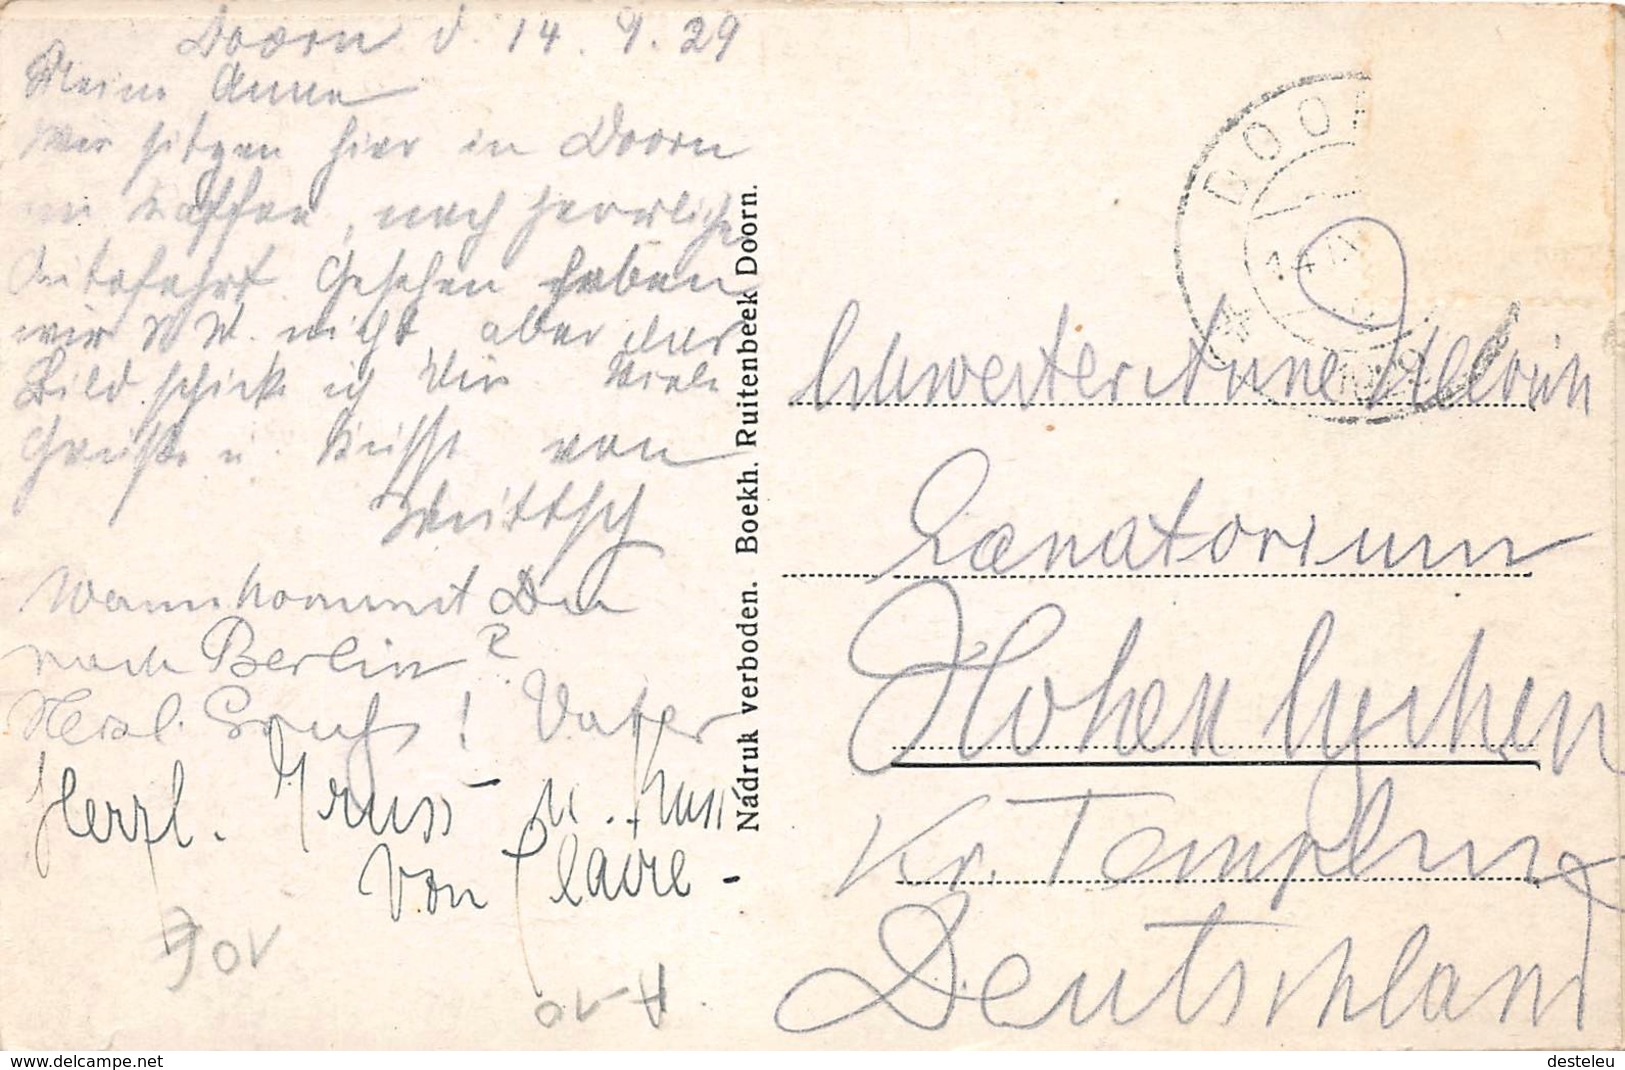 Doorn d. 14. 9. 29
Meine Anne
Wir sitzen hier in Doorn
im Kaffee, nach herrlicher
Autofahrt. Gesehen haben
wir nicht aber das
Bild schicke ich Dir Viele
Grüße u. Küsse von
Wann kommst Du
nach Berlin?
Herzl. Gruß! Vater
Herzl. Gruss u. Kuss
von Claire -
Nádruk verboden. Boekh. Ruitenbeek Doorn.
DOOR
14 IX
Schwester Anne
Sanatorium
Hohenlychen
Kr. Templin
Deutschland
www.delcampe.net
desteleu